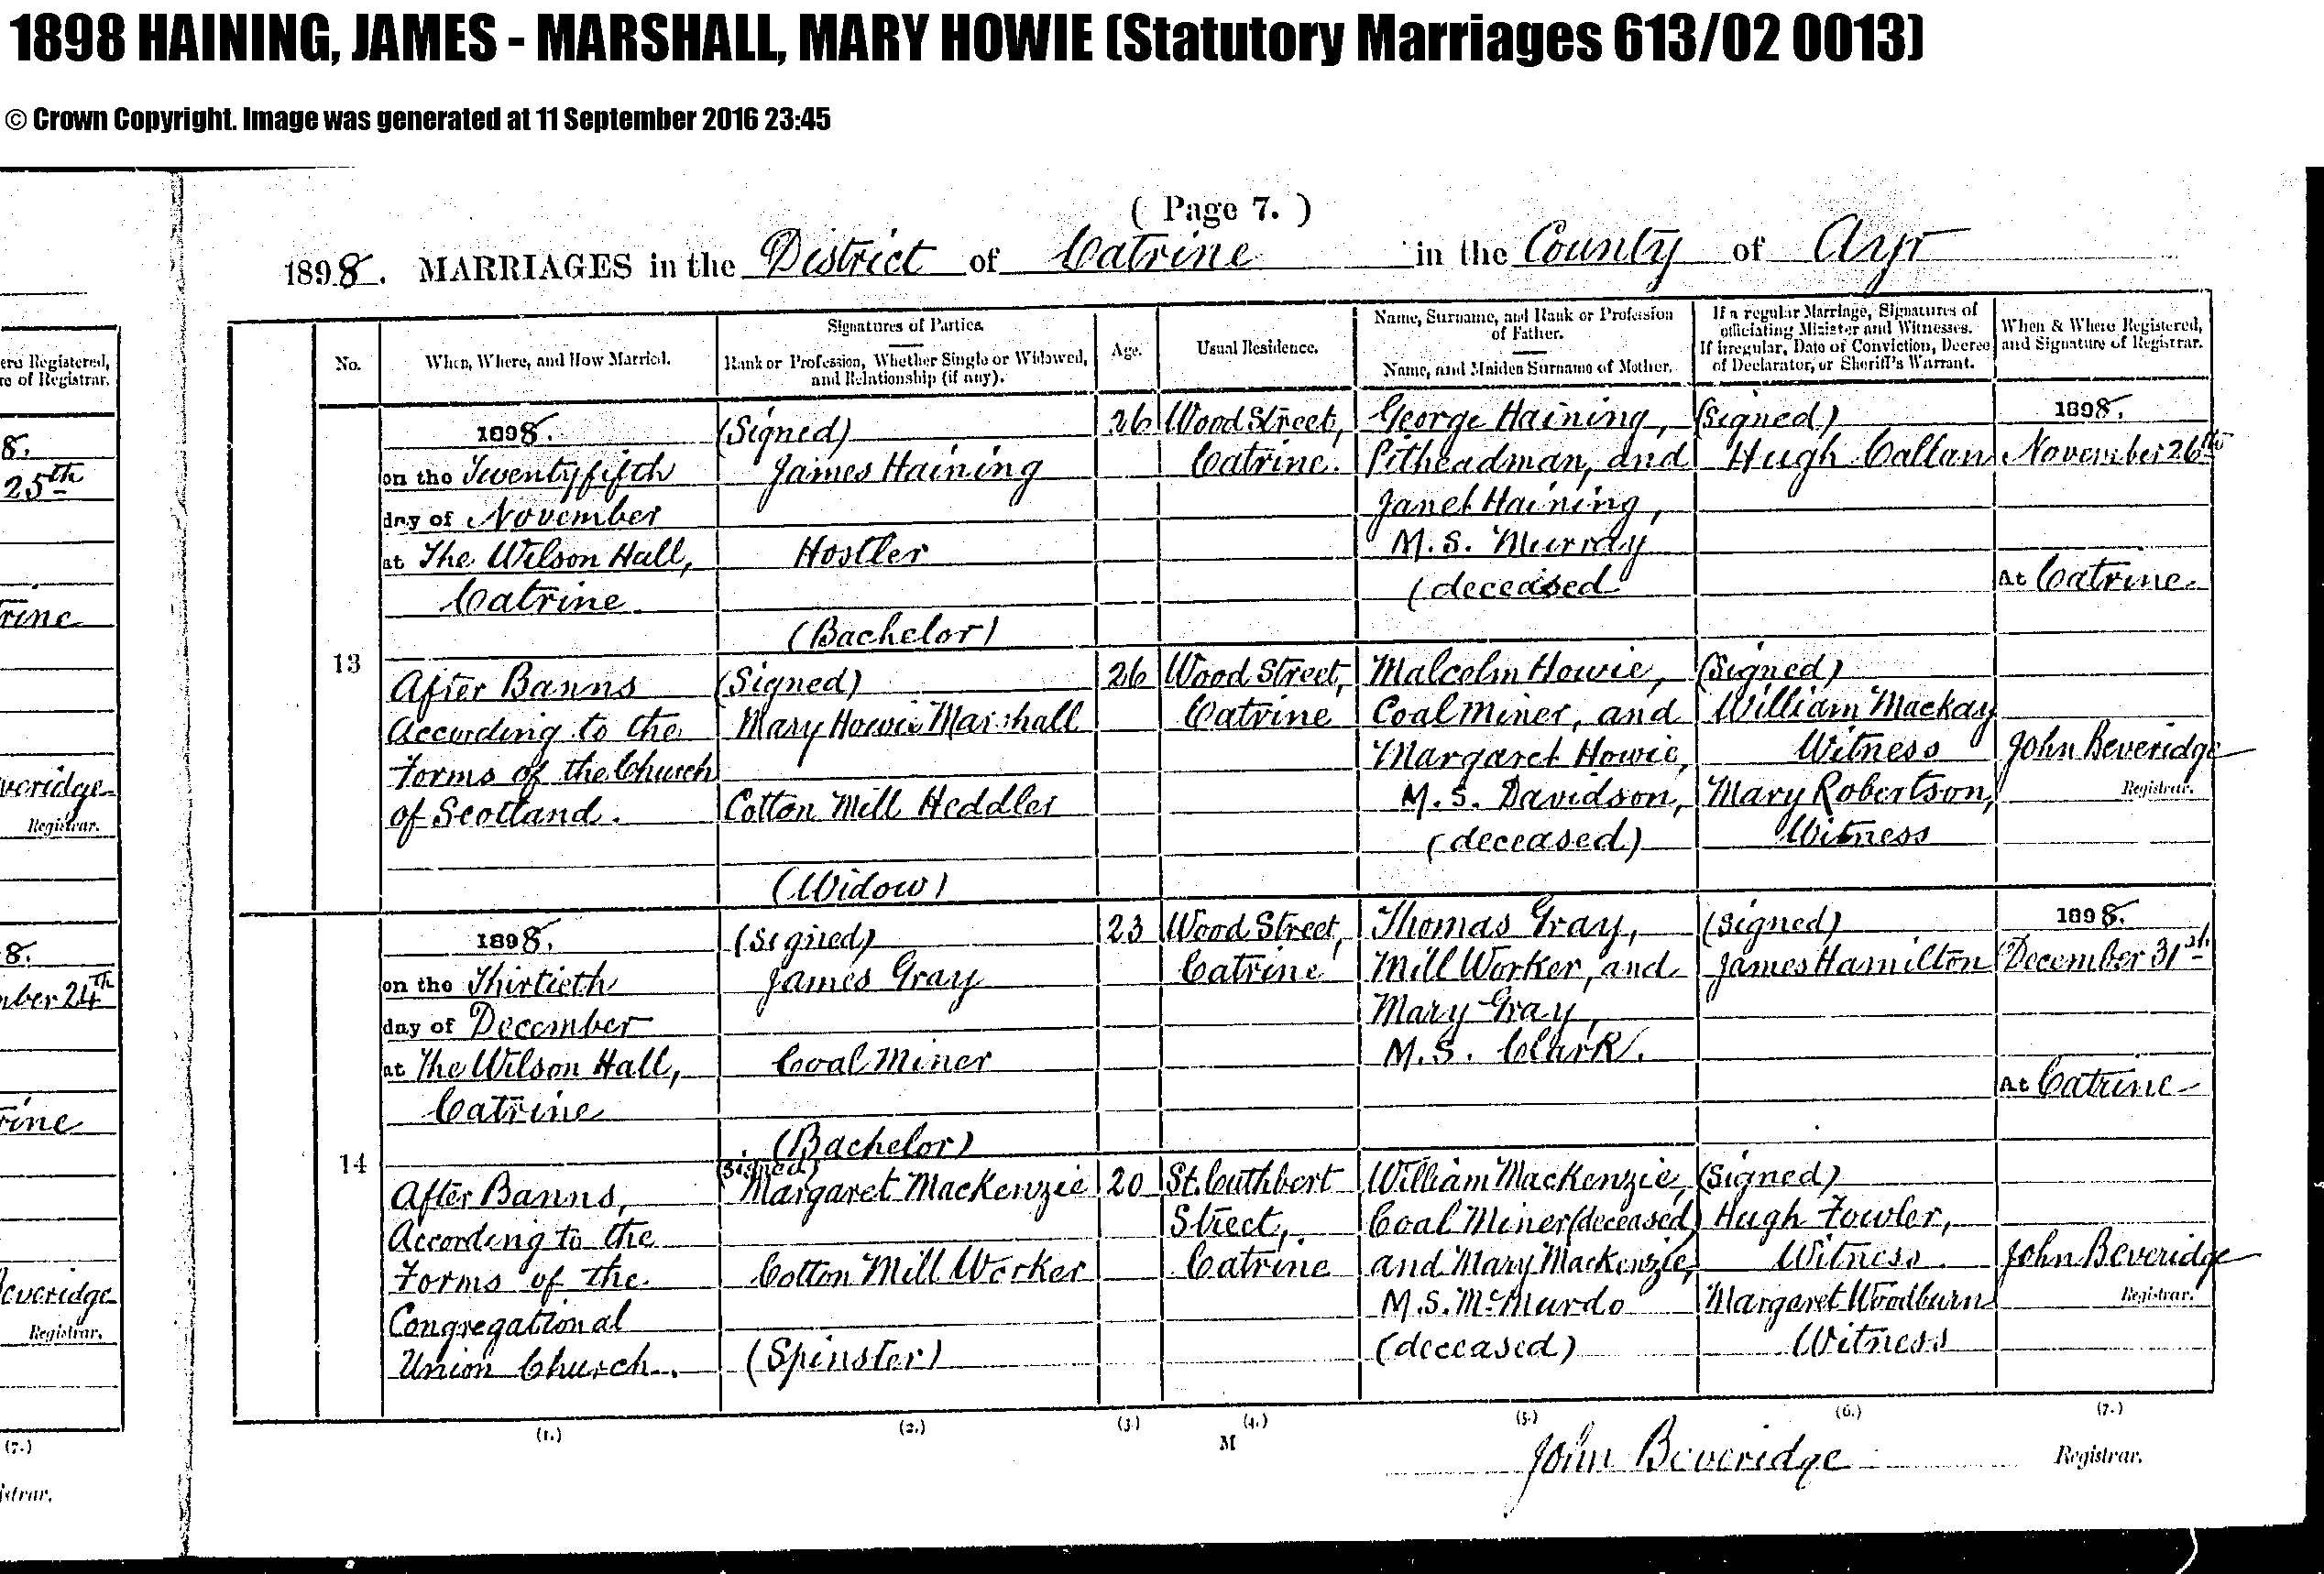 1898 HAINING, JAMES - MARSHALL, MARY HOWIE (Statutory Marriages 613/02 0013)
© Crown Copyright. Image was generated at 11 September 2016 23:45
( Page 7. )
1898. MARRIAGES in the District of Catrine in the County of Ayr
No.
When, Where, and How Married.
Signatures of Parties.
Rank or Profession, Whether Single or Widowed,
and Relationship (if any).
Age.
Usual Residence.
Name, Surname, and Rank or Profession
of Father.
Name, and Maiden Surname of Mother.
If a regular Marriage, Signatures of
officiating Minister and Witnesses.
If irregular, Date of Conviction, Decree
of Declarator, or Sheriff's Warrant.
When & Where Registered,
and Signature of Registrar.
13
1898.
on the Twentyfifth
day of November
at The Wilson Hall,
Catrine
After Banns
According to the
Forms of the Church
of Scotland.
(Signed)
James Haining
Hostler
(Bachelor)
(Signed)
Mary Howie Marshall
Cotton Mill Heddler
(Widow)
26
26
Wood Street,
Catrine.
Wood Street,
Catrine
George Haining,
Pitheadman, and
Janet Haining,
M.S. Murray
(deceased
Malcolm Howie,
Coal Miner, and
Margaret Howie,
M.S. Davidson,
(deceased)
(Signed)
Hugh Callan
(Signed)
William Mackay
Witness
Mary Robertson,
Witness
1898.
November 26th
At Catrine
John Beveridge
Registrar.
14
1898.
on the Thirtieth
day of December
at The Wilson Hall,
Catrine
After Banns,
According to the
Forms of the
Congregational
Union Church.
(Signed)
James Gray
Coal Miner
(Bachelor)
(Signed)
Margaret MacKenzie
Cotton Mill Worker
(Spinster)
23
20
Wood Street,
Catrine
St. Cuthbert
Street,
Catrine
Thomas Gray,
Mill Worker, and
Mary Gray,
M.S. Clark.
William MacKenzie,
Coal Miner (deceased)
and Mary MacKenzie,
M.S. McMurdo
(deceased)
(Signed)
James Hamilton
(Signed)
Hugh Fowler,
Witness
Margaret Woodburn
Witness
1898.
December 31st
At Catrine
John Beveridge
Registrar.
(1.)
(2.)
(3.)
(4.)
(5.)
(6.)
(7.)
M
John Beveridge Registrar.
ere Registered,
re of Registrar.
8.
25th
rine
veridge
Registrar.
8.
mber 24th
rine
Beveridge
Registrar.
(7.)
istrar.